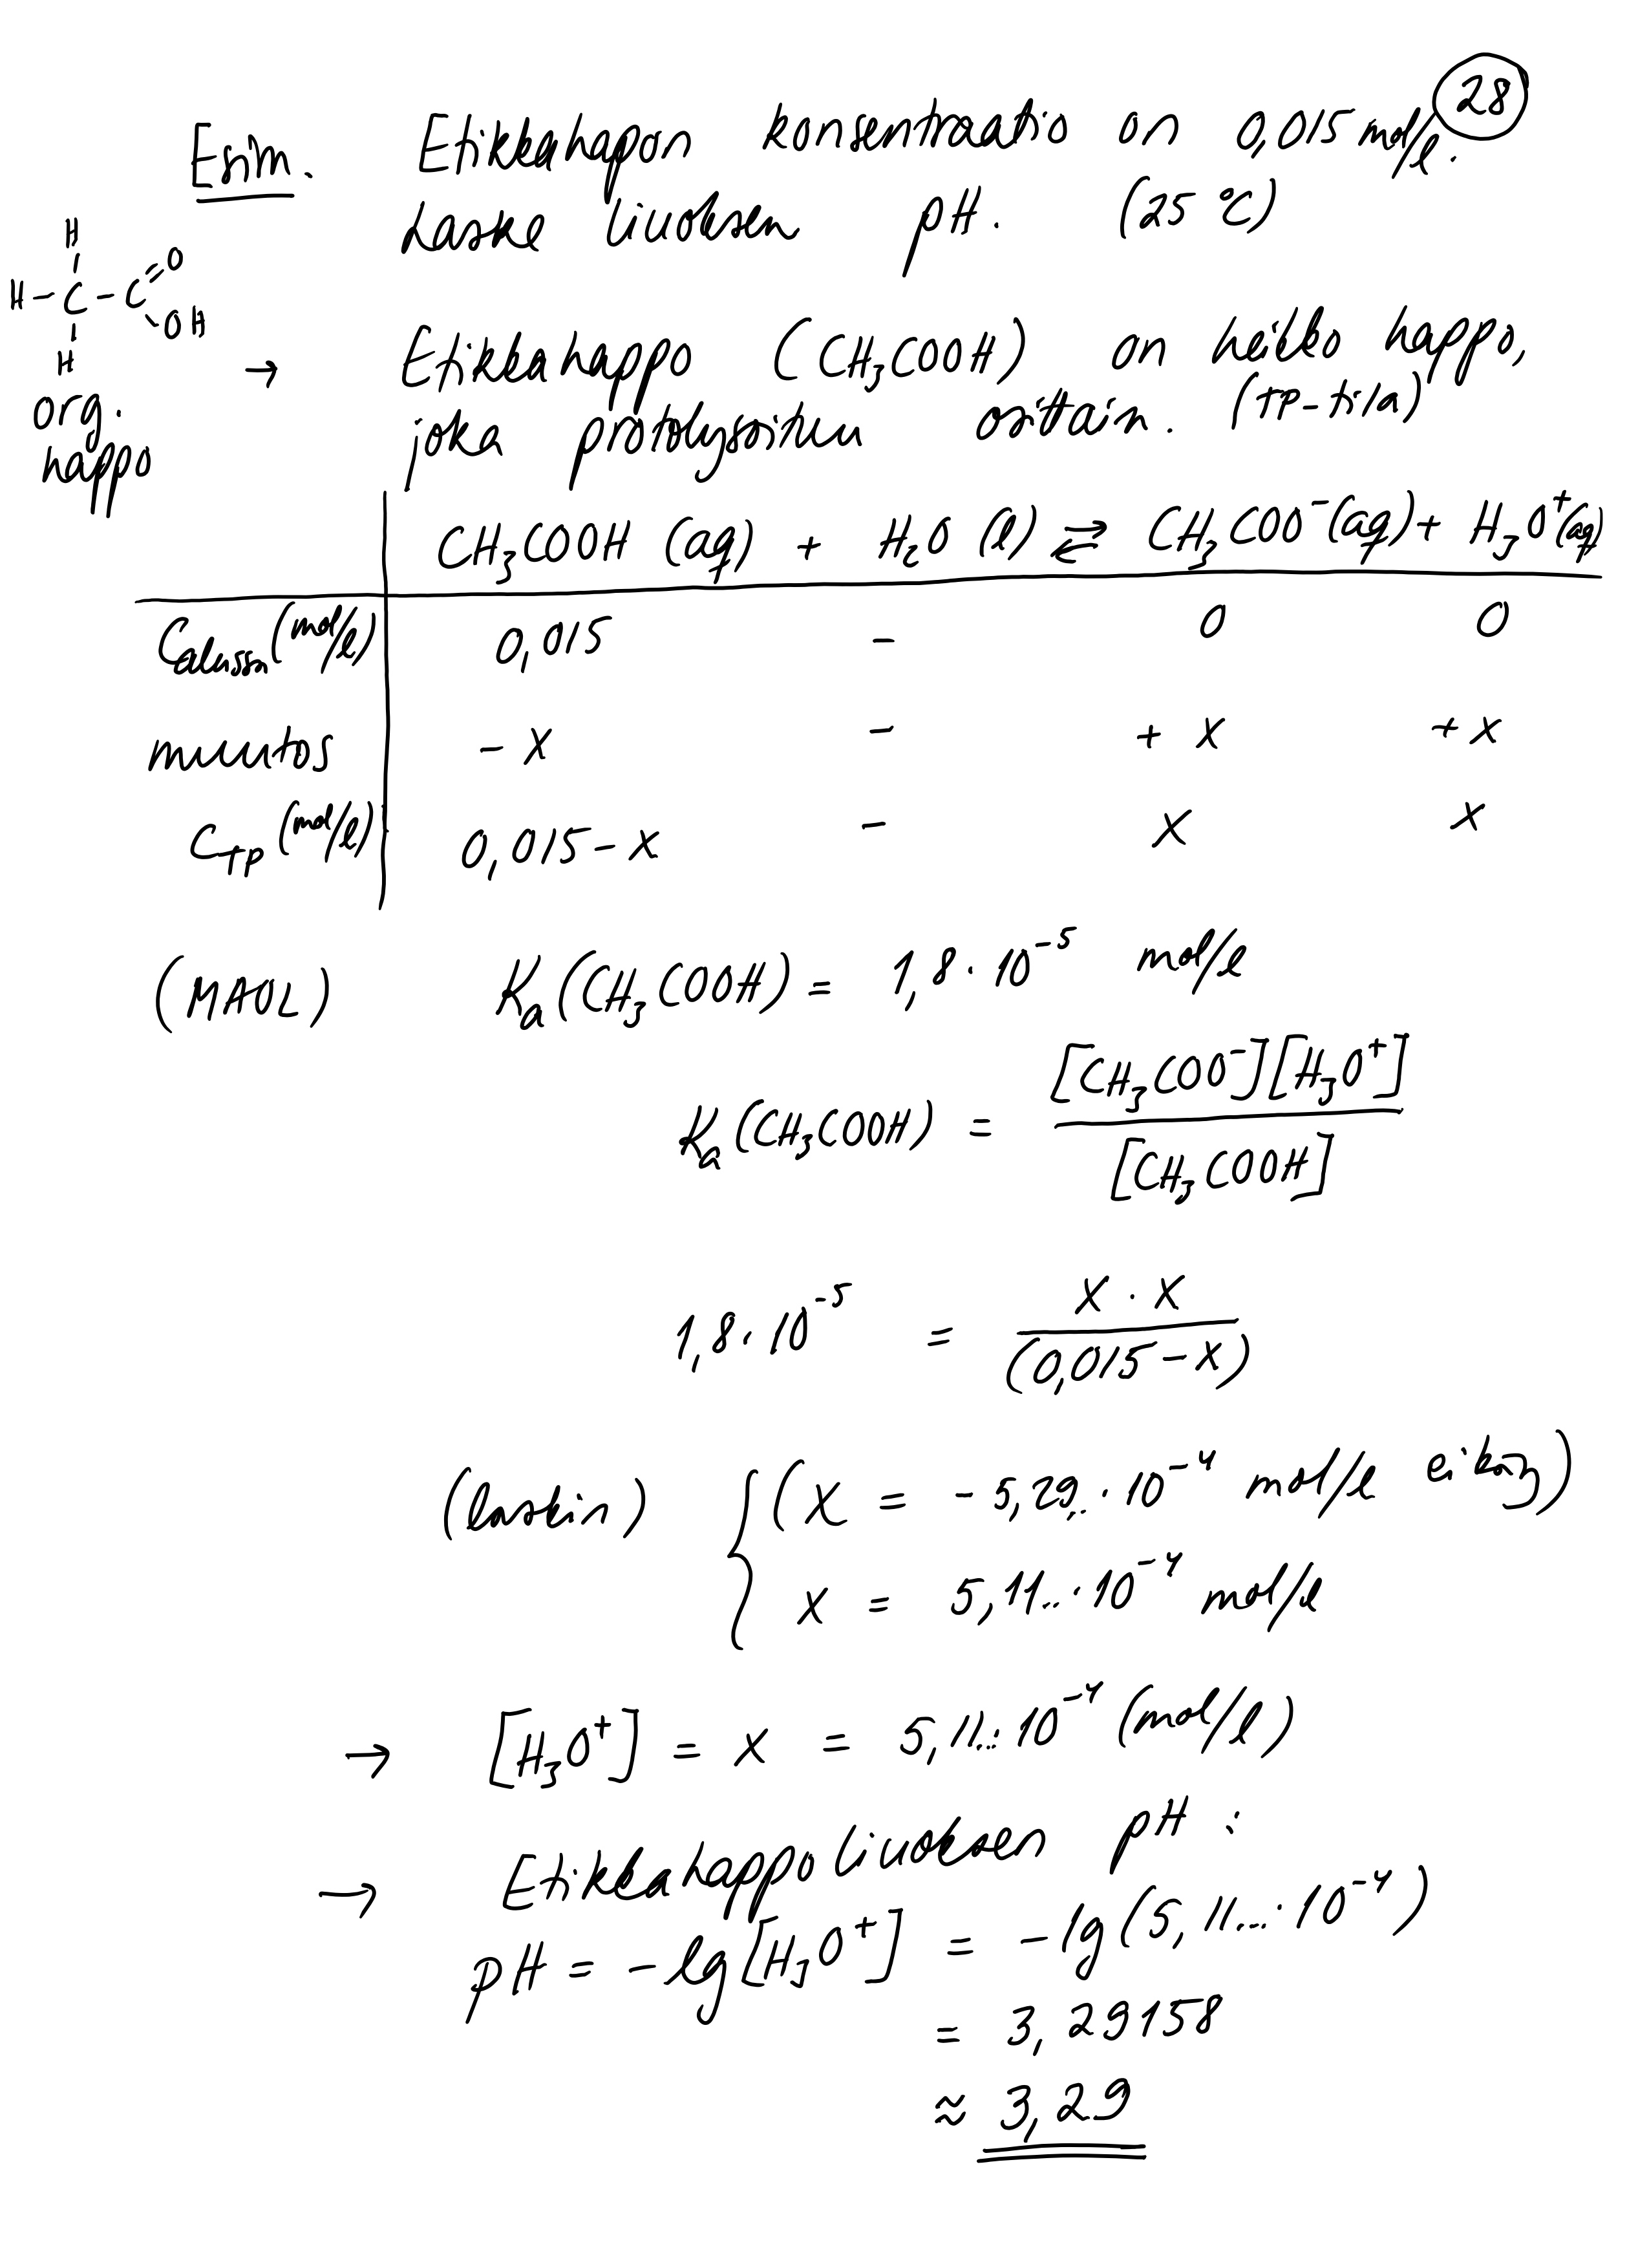 28
Esim. Etikkahapon konsentraatio on 0,015 mol/l.
Laske liuoksen pH. (25 °C)
H
H - C - C = O
OH
H
org.
happo
→ Etikkahappo (CH₃COOH) on heikko happo,
joka protolysoituu osittain. (TP-tila)
CH₃COOH (aq) + H₂O (l) ⇄ CH₃COO⁻(aq) + H₃O⁺(aq)
Calussa (mol/l) 0,015 - 0 0
muutos - x - + x + x
C_TP (mol/l) 0,015 - x - x x
(MAOL) Kₐ(CH₃COOH) = 1,8 · 10⁻⁵ mol/l
Kₐ(CH₃COOH) = [CH₃COO⁻][H₃O⁺] / [CH₃COOH]
1,8 · 10⁻⁵ = x · x / (0,015 - x)
(laskin) { (x = - 5,29.. · 10⁻⁴ mol/l ei käy)
x = 5,11.. · 10⁻⁴ mol/l
→ [H₃O⁺] = x = 5,11.. · 10⁻⁴ (mol/l)
→ Etikkahappoliuoksen pH :
pH = - lg [H₃O⁺] = - lg (5,11... · 10⁻⁴)
= 3,29158
≈ 3,29